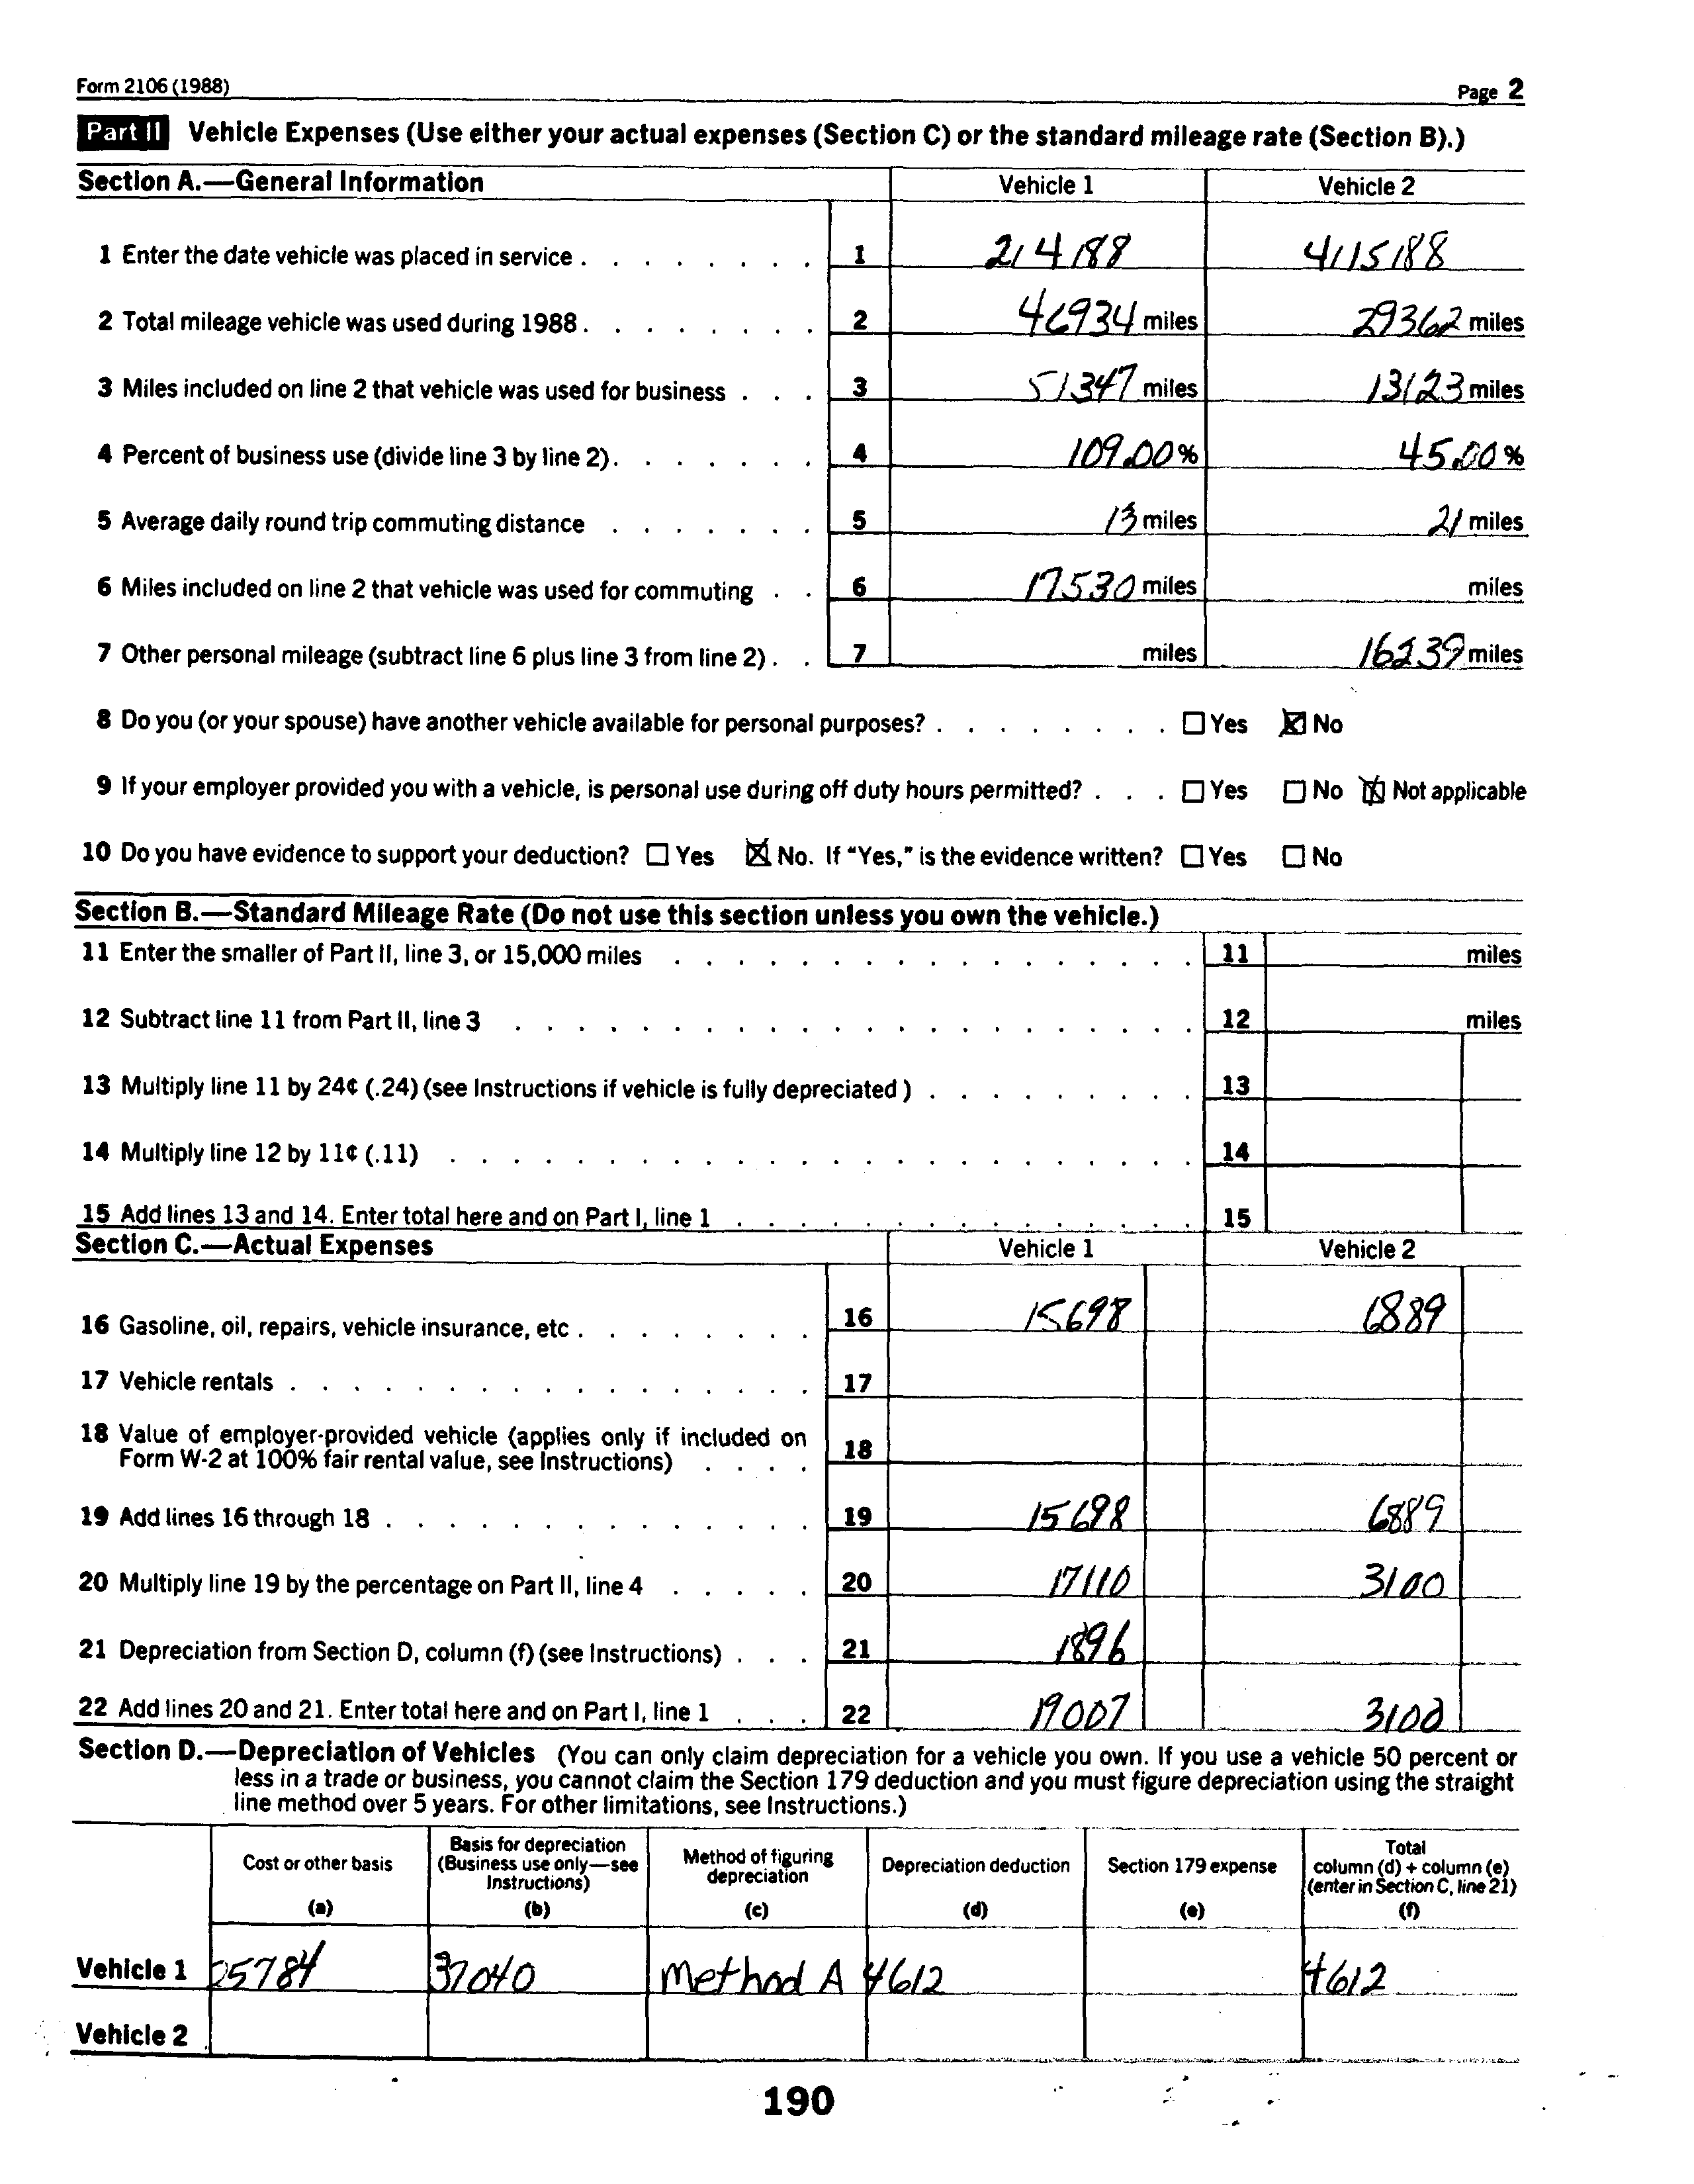 Form 2106 (1988)
Page 2
Part II Vehicle Expenses (Use either your actual expenses (Section C) or the standard mileage rate (Section B).)
Section A.—General Information Vehicle 1 Vehicle 2
1 Enter the date vehicle was placed in service . . . . . . . . 1 2/4/88 4/15/88
2 Total mileage vehicle was used during 1988 . . . . . . . . 2 46934 miles 29362 miles
3 Miles included on line 2 that vehicle was used for business . . . 3 51347 miles 13123 miles
4 Percent of business use (divide line 3 by line 2) . . . . . . . 4 109.00 % 45.00 %
5 Average daily round trip commuting distance . . . . . . . 5 13 miles 21 miles
6 Miles included on line 2 that vehicle was used for commuting . . 6 17530 miles miles
7 Other personal mileage (subtract line 6 plus line 3 from line 2) . . 7 miles 16239 miles
8 Do you (or your spouse) have another vehicle available for personal purposes? . . . . . . . . ☐ Yes ☒ No
9 If your employer provided you with a vehicle, is personal use during off duty hours permitted? . . . ☐ Yes ☐ No ☒ Not applicable
10 Do you have evidence to support your deduction? ☐ Yes ☒ No. If "Yes," is the evidence written? ☐ Yes ☐ No
Section B.—Standard Mileage Rate (Do not use this section unless you own the vehicle.)
11 Enter the smaller of Part II, line 3, or 15,000 miles . . . . . . . . . . . . . . . . . 11 miles
12 Subtract line 11 from Part II, line 3 . . . . . . . . . . . . . . . . . . . . . . 12 miles
13 Multiply line 11 by 24¢ (.24) (see Instructions if vehicle is fully depreciated ) . . . . . . . . . 13
14 Multiply line 12 by 11¢ (.11) . . . . . . . . . . . . . . . . . . . . . . . . 14
15 Add lines 13 and 14. Enter total here and on Part I, line 1 . . . . . . . . . . . . . . . 15
Section C.—Actual Expenses Vehicle 1 Vehicle 2
16 Gasoline, oil, repairs, vehicle insurance, etc . . . . . . . . 16 15698 6889
17 Vehicle rentals . . . . . . . . . . . . . . . . . 17
18 Value of employer-provided vehicle (applies only if included on
Form W-2 at 100% fair rental value, see Instructions) . . . . 18
19 Add lines 16 through 18 . . . . . . . . . . . . . . 19 15698 6889
20 Multiply line 19 by the percentage on Part II, line 4 . . . . . 20 17110 3100
21 Depreciation from Section D, column (f) (see Instructions) . . . 21 1896
22 Add lines 20 and 21. Enter total here and on Part I, line 1 . . . 22 19007 3100
Section D.—Depreciation of Vehicles (You can only claim depreciation for a vehicle you own. If you use a vehicle 50 percent or
less in a trade or business, you cannot claim the Section 179 deduction and you must figure depreciation using the straight
line method over 5 years. For other limitations, see Instructions.)
Cost or other basis
(a)
Basis for depreciation
(Business use only—see
Instructions)
(b)
Method of figuring
depreciation
(c)
Depreciation deduction
(d)
Section 179 expense
(e)
Total
column (d) + column (e)
(enter in Section C, line 21)
(f)
Vehicle 1 25784 37040 Method A 4612 4612
Vehicle 2
190